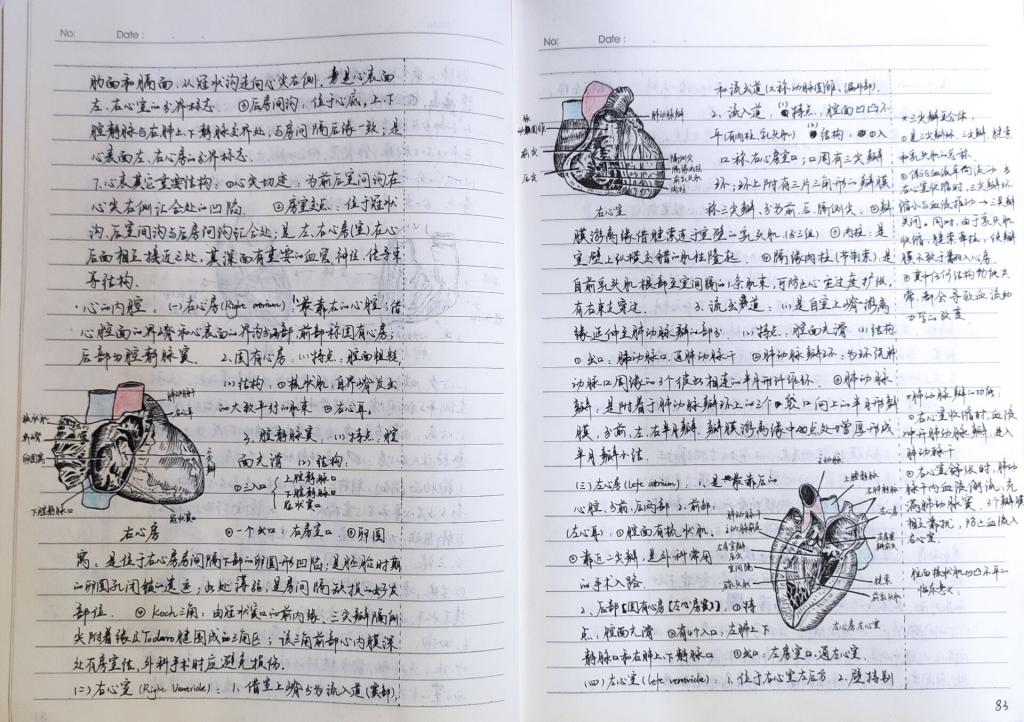 No: Date:
肋面和膈面,从冠状沟走向心尖右侧,是心表面
左、右心室的分界标志 ③后房间沟:位于心底,上下
腔静脉与右肺上下静脉交界处,与房间隔后缘一致;是
心表面左、右心房的分界标志.
7.心表其它重要结构:①心尖切迹:为前后室间沟在
心尖右侧汇合处的凹陷. ②房室交点:位于冠状
沟、后室间沟与后房间沟汇合处;是左、右心房(室)在心
后面相互接近之处,其深面有重要的血管、神经、传导束
等结构.
·心的内腔:(一)右心房(Right atrium) 1.最靠右的心腔;借
心腔面的界嵴和心表面的界沟分两部,前部称固有心房;
后部为腔静脉窦. 2.固有心房:(1)特点:腔面粗糙
(2)结构:①梳状肌:自界嵴发出
的大致平行的肌束 ②右心耳
3.腔静脉窦:(1)特点:腔
面光滑 (2)结构:
①三入口 上腔静脉口
下腔静脉口
冠状窦口
梳状肌
界嵴
卵圆窝
下腔静脉口
右心耳
冠状窦口
右心房
②一个出口:右房室口 ③卵圆
窝:是位于右心房房间隔下部的卵圆形凹陷;是胚胎时期
的卵圆孔闭锁的遗迹;此处薄弱,是房间隔缺损的好发
部位. ④Koch三角:由冠状窦口的前内缘、三尖瓣隔侧
尖附着缘及Todaro腱围成的三角区;该三角前部心内膜深
处有房室结,外科手术时应避免损伤.
(二)右心室(Right Ventricle):1.借室上嵴分为流入道(窦部)
No: Date:
和流出道(又称动脉圆锥、漏斗部).
2.流入道:(1)特点:腔面凹凸不
平(有肉柱、乳头肌) (2)结构:①入
口:称右心房室口;口周有三尖瓣
环;环上附有三片三角形的瓣膜
称三尖瓣,分为前、后、隔侧尖;②瓣
膜游离缘借腱索连于室壁的乳头肌(分三组) ③肉柱:是
室壁上纵横交错的肌性隆起 ④隔缘肉柱(节制束):是
自前乳头肌根部至室间隔的1条肌束,可防止心室过度扩张,
有右束支穿过. 3.流出道:(1)是自室上嵴游离
缘延伸至肺动脉瓣的部分. (2)特点:腔面光滑 (3)结构
①出口:肺动脉口,通肺动脉干 ②肺动脉瓣环:为环绕肺
动脉口周缘的3个彼此相连的半月形纤维环. ③肺动脉
瓣:是附着于肺动脉瓣环上的三个袋口向上的半月形瓣
膜,分前、左、右半月瓣.瓣膜游离缘中央点处增厚形成
半月瓣小结.
(三)左心房(left atrium):1.是最靠后的
心腔,分前、后两部 2.前部:
(左心耳):①腔面有梳状肌
②靠近二尖瓣,是外科常用
的手术入路.
2.后部【固有心房(左心房窦)】.①特
点:腔面光滑 ②有4个入口:左肺上下
静脉口和右肺上下静脉口 ③出口:左房室口,通左心室.
(四)左心室(left ventricle):1.位于右心室左后方 2.壁特别
动脉圆锥
前尖
后尖
肺动脉瓣
隔侧尖
隔缘肉柱
前乳头肌
肉柱
右心室
*三尖瓣复合体:
①是三尖瓣环、三尖瓣、腱索
和乳头肌的总称.
②保证血液单向流动:当
右心室收缩时,三尖瓣环
缩小与血流推动→三尖瓣
关闭.同时,由于乳头肌
收缩,腱索牵拉,使瓣
膜不致于翻入心房
③其中任何结构的损失
常都会导致血流动
力学的改变
*肺动脉瓣的功能:
①右心室收缩时,血液
冲开肺动脉瓣,进入
肺动脉干
②右心室舒张时,肺动
脉干内血液倒流,充
满肺动脉窦,3个瓣膜
相互靠拢,防止血流入
右心室.
主动脉
上腔静脉
右肺静脉
左心房
肺动脉干
腱索
前乳头肌
室间隔
左心房左心室
腔面梳状肌凹凸不平的
临床意义:
83